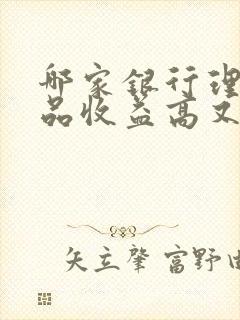 哪家银行理
品收益高又
矢立肇 富野由